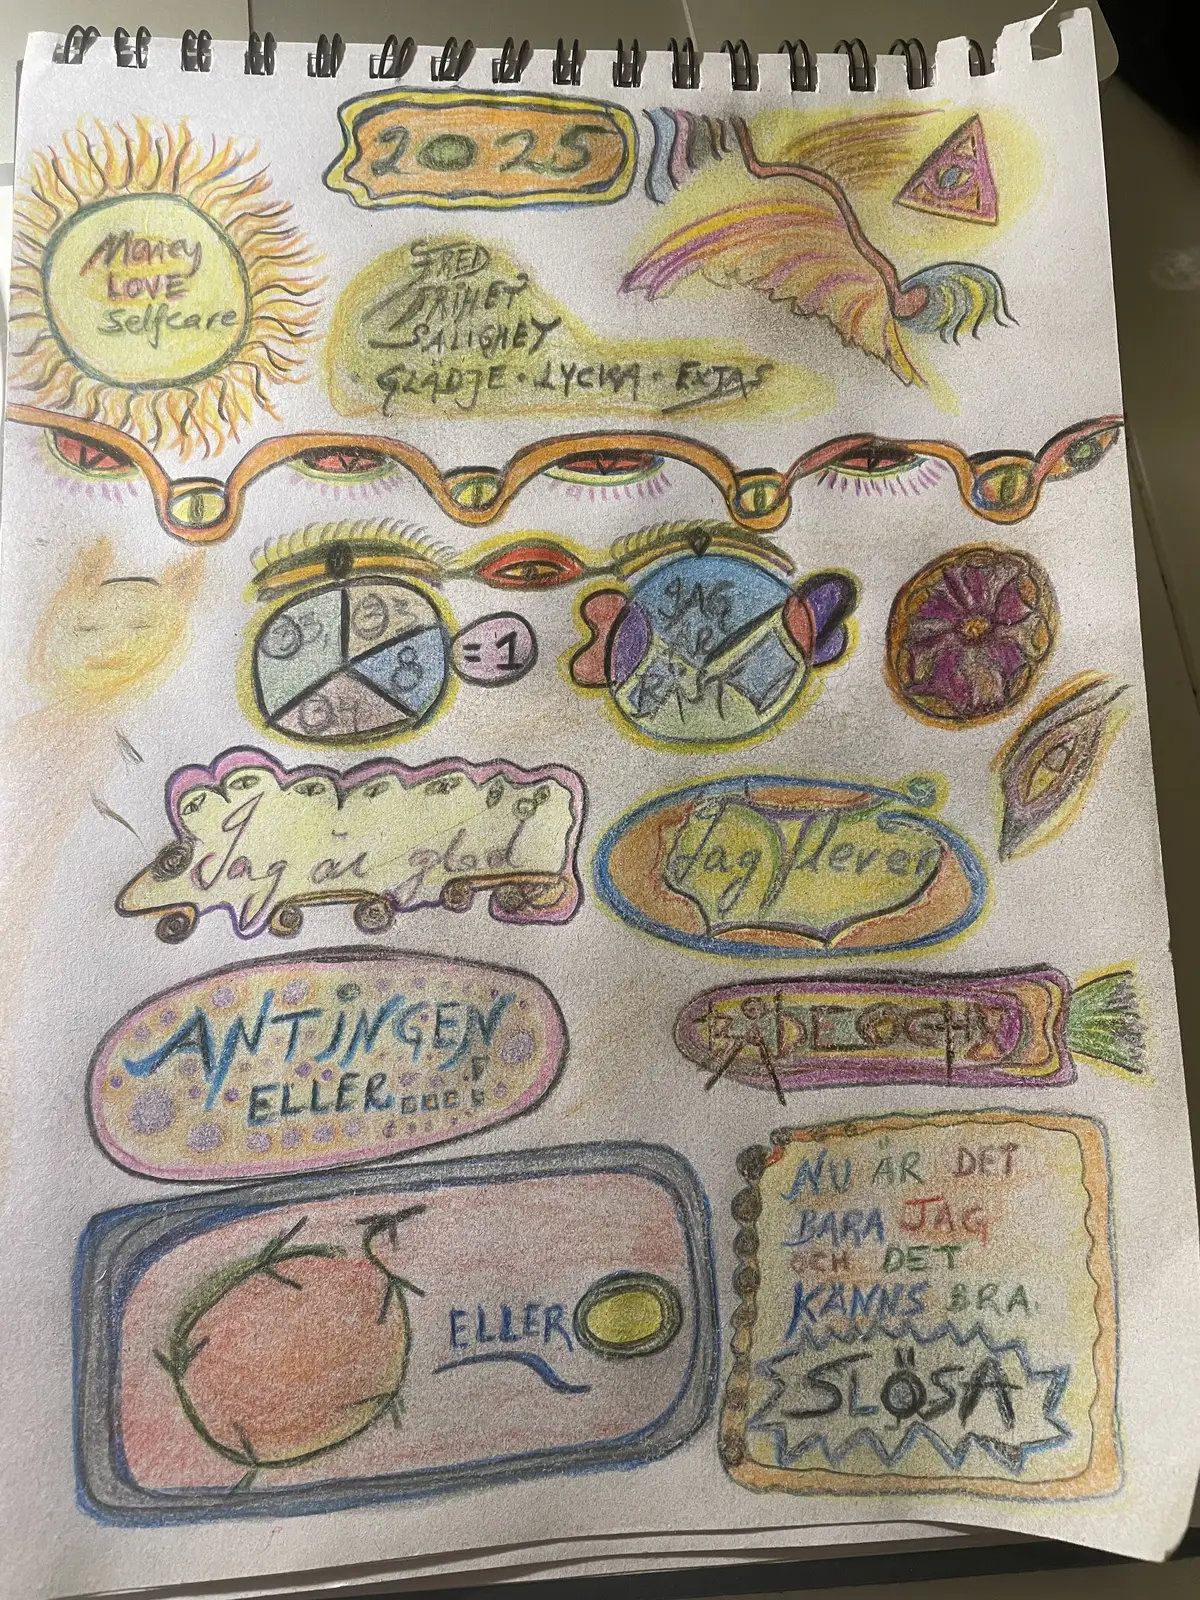 2025
Money
LOVE
Selfcare
FRED
FRIHET
SALIGHET
GLÄDJE • LYCKA • EXTAS
8
= 1
JAG
ÄR
RÄTT
Jag är glad
Jag lever
ANTINGEN
ELLER
BÅDE OCH
ELLER
NU ÄR DET
BARA JAG
OCH DET
KÄNNS BRA.
SLÖSA